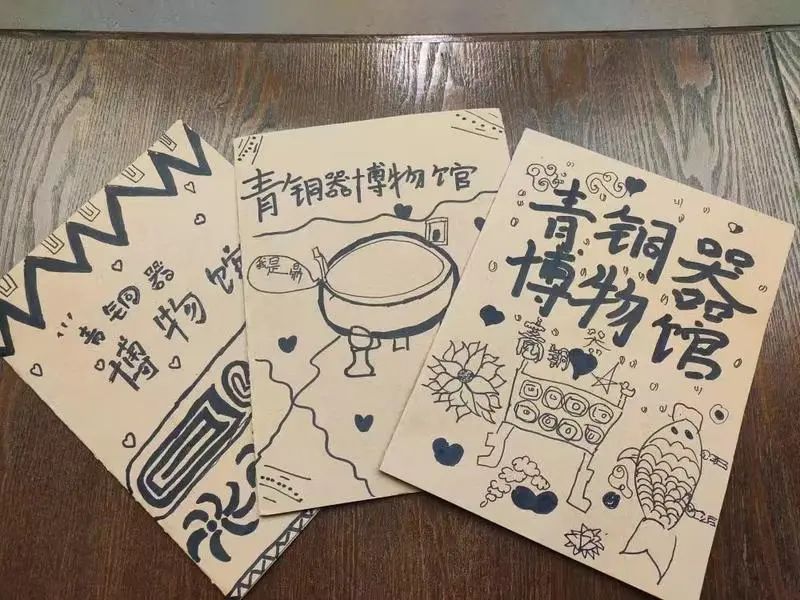 青铜器
博物馆
青铜器博物馆
我是鼎
青铜器
博物馆
青铜器